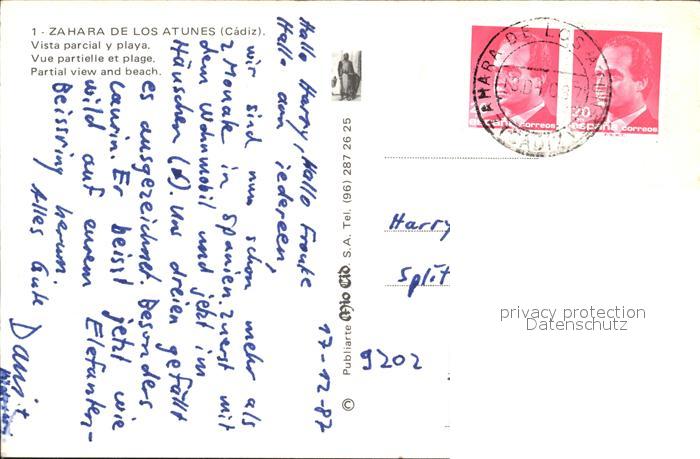 1 - ZAHARA DE LOS ATUNES (Cádiz).
Vista parcial y playa.
Vue partielle et plage.
Partial view and beach.
17-12-87
Hallo Harry, Hallo Frouke
Hallo an iedereen,
wir sind nun schon mehr als
2 Monate in Spanien. zuerst mit
dem Wohnmobil und jetzt im
Häuschen (6). Uns dreien gefällt
es ausgezeichnet. Besonders
Laurin. Er beisst jetzt wie
wild auf eurem Elefanten-
Beissring herum.
Alles Gute
© Publiarte Mio Cid S.A. Tel. (96) 287 26 25
ZAHARA DE LOS
correos
20
españa correos
Harry
Split
9202
privacy protection
Datenschutz